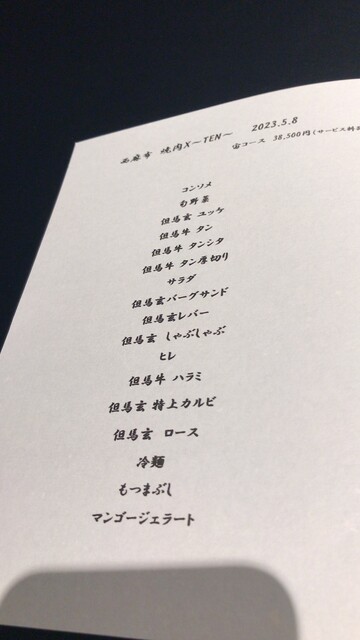 西麻布 焼肉X～TEN～ 2023.5.8
宙コース 38,500円(サービス料
コンソメ
旬野菜
但馬玄 ユッケ
但馬牛 タン
但馬牛 タンシタ
但馬牛 タン厚切り
サラダ
但馬玄バーグサンド
但馬玄レバー
但馬玄 しゃぶしゃぶ
ヒレ
但馬牛 ハラミ
但馬玄 特上カルビ
但馬玄 ロース
冷麺
もつまぶし
マンゴージェラート